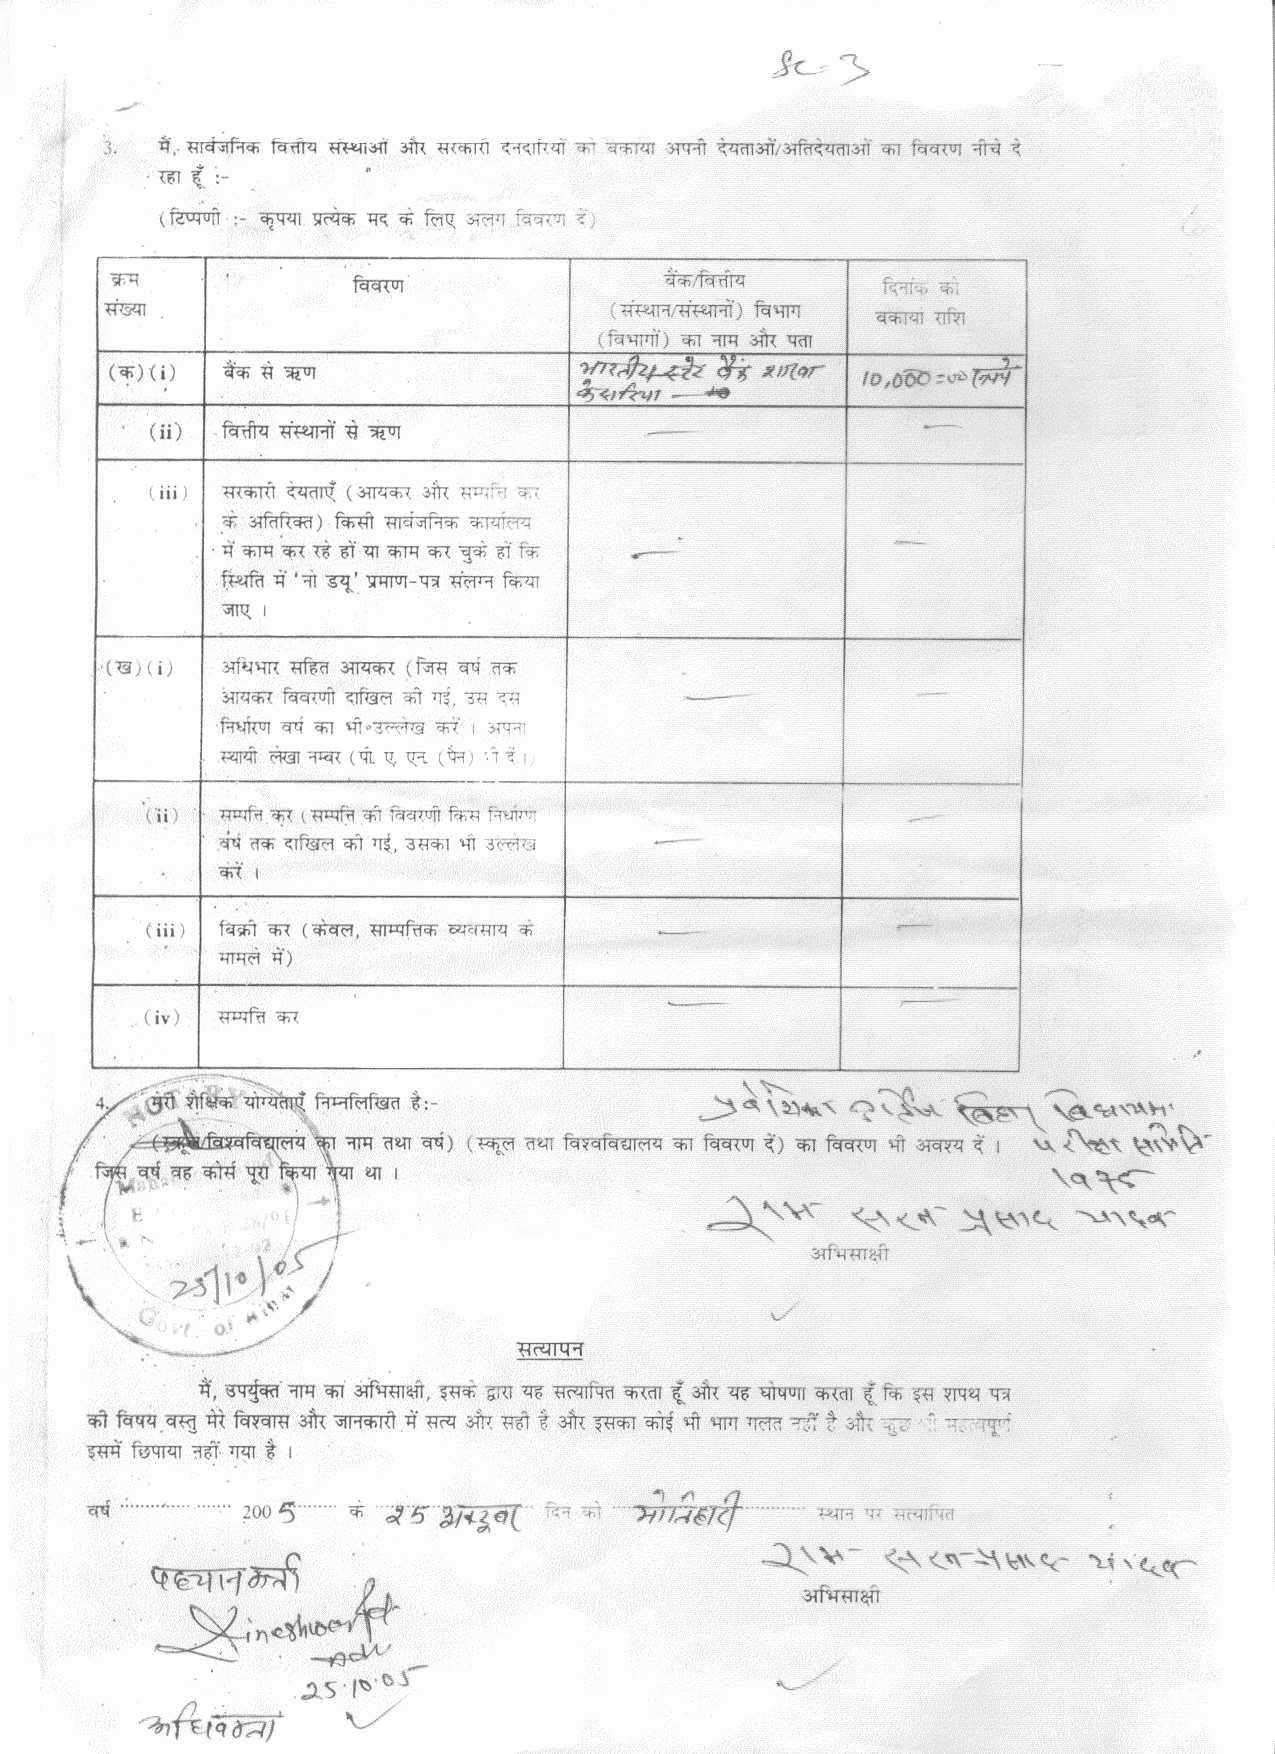 Sc-3
3. मैं, सार्वजनिक वित्तीय संस्थाओं और सरकारी देनदारियों को बकाया अपनी देयताओं/अतिदेयताओं का विवरण नीचे दे
रहा हूँ :-
(टिप्पणी :- कृपया प्रत्येक मद के लिए अलग विवरण दें)
क्रम संख्या
विवरण
बैंक/वित्तीय (संस्थान/संस्थानों) विभाग (विभागों) का नाम और पता
दिनांक को बकाया राशि
(क)(i) बैंक से ऋण भारतीय स्टेट बैंक शाखा 10,000=00 रूपये
केसरिया
(ii) वित्तीय संस्थानों से ऋण — —
(iii) सरकारी देयताएँ (आयकर और सम्पत्ति कर
के अतिरिक्त) किसी सार्वजनिक कार्यालय
में काम कर रहे हों या काम कर चुके हों कि — —
स्थिति में 'नो डयू' प्रमाण-पत्र संलग्न किया
जाए ।
(ख)(i) अधिभार सहित आयकर (जिस वर्ष तक
आयकर विवरणी दाखिल की गई, उस दस — —
निर्धारण वर्ष का भी उल्लेख करें । अपना
स्थायी लेखा नम्बर (पी. ए. एन. (पैन) भी दें।)
(ii) सम्पत्ति कर (सम्पत्ति की विवरणी किस निर्धारण
वर्ष तक दाखिल की गई, उसका भी उल्लेख — —
करें ।
(iii) बिक्री कर (केवल, साम्पत्तिक व्यवसाय के — —
मामले में)
(iv) सम्पत्ति कर — —
4. मेरी शैक्षिक योग्यताएँ निम्नलिखित है:- प्रवेशिका बिहार विद्यालय
(स्कूल/विश्वविद्यालय का नाम तथा वर्ष) (स्कूल तथा विश्वविद्यालय का विवरण दें) का विवरण भी अवश्य दें । परीक्षा समिति
जिस वर्ष वह कोर्स पूरा किया गया था । 1975
राम सरन प्रसाद यादव
अभिसाक्षी
NOTARY
25/10/05
Govt. of Bihar
सत्यापन
मैं, उपर्युक्त नाम का अभिसाक्षी, इसके द्वारा यह सत्यापित करता हूँ और यह घोषणा करता हूँ कि इस शपथ पत्र
की विषय वस्तु मेरे विश्वास और जानकारी में सत्य और सही है और इसका कोई भी भाग गलत नहीं है और कुछ भी महत्वपूर्ण
इसमें छिपाया नहीं गया है ।
वर्ष 2005 के 25 अक्टूबर दिन को मोतिहारी स्थान पर सत्यापित
राम सरन प्रसाद यादव
अभिसाक्षी
पहचानकर्ता
Dineshwar Pd
Adv
25.10.05
अधिवक्ता